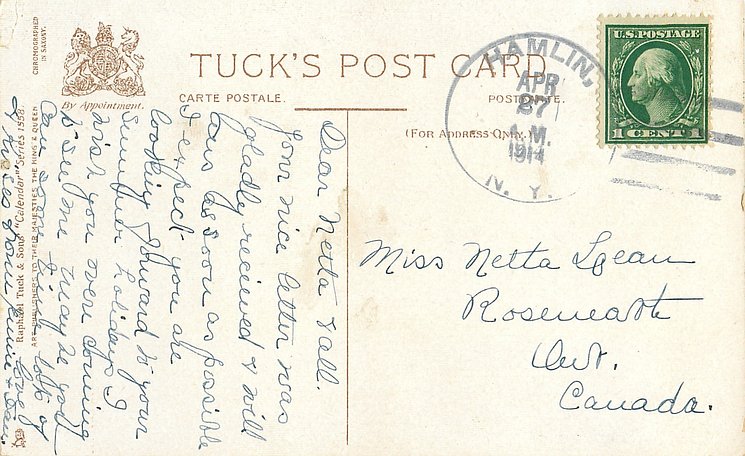 CHROMOGRAPHED
IN SAXONY.
By Appointment.
TUCK'S POST CARD
CARTE POSTALE.
(For Address Only.)
HAMLIN,
APR
27
M.
1914
N. Y.
U.S. POSTAGE
1 CENT 1
Dear Netta & all.
Your nice letter was
gladly received & will
ans as soon as possible
I expect you are
looking forward to your
summer holidays I
wish you were coming
to see me may be you
can some time lots of
love
Raphael Tuck & Sons' "Calendar" Series 1558.
ART PUBLISHERS TO THEIR MAJESTIES THE KING & QUEEN
Miss Netta
Roseneath
Ont.
Canada.